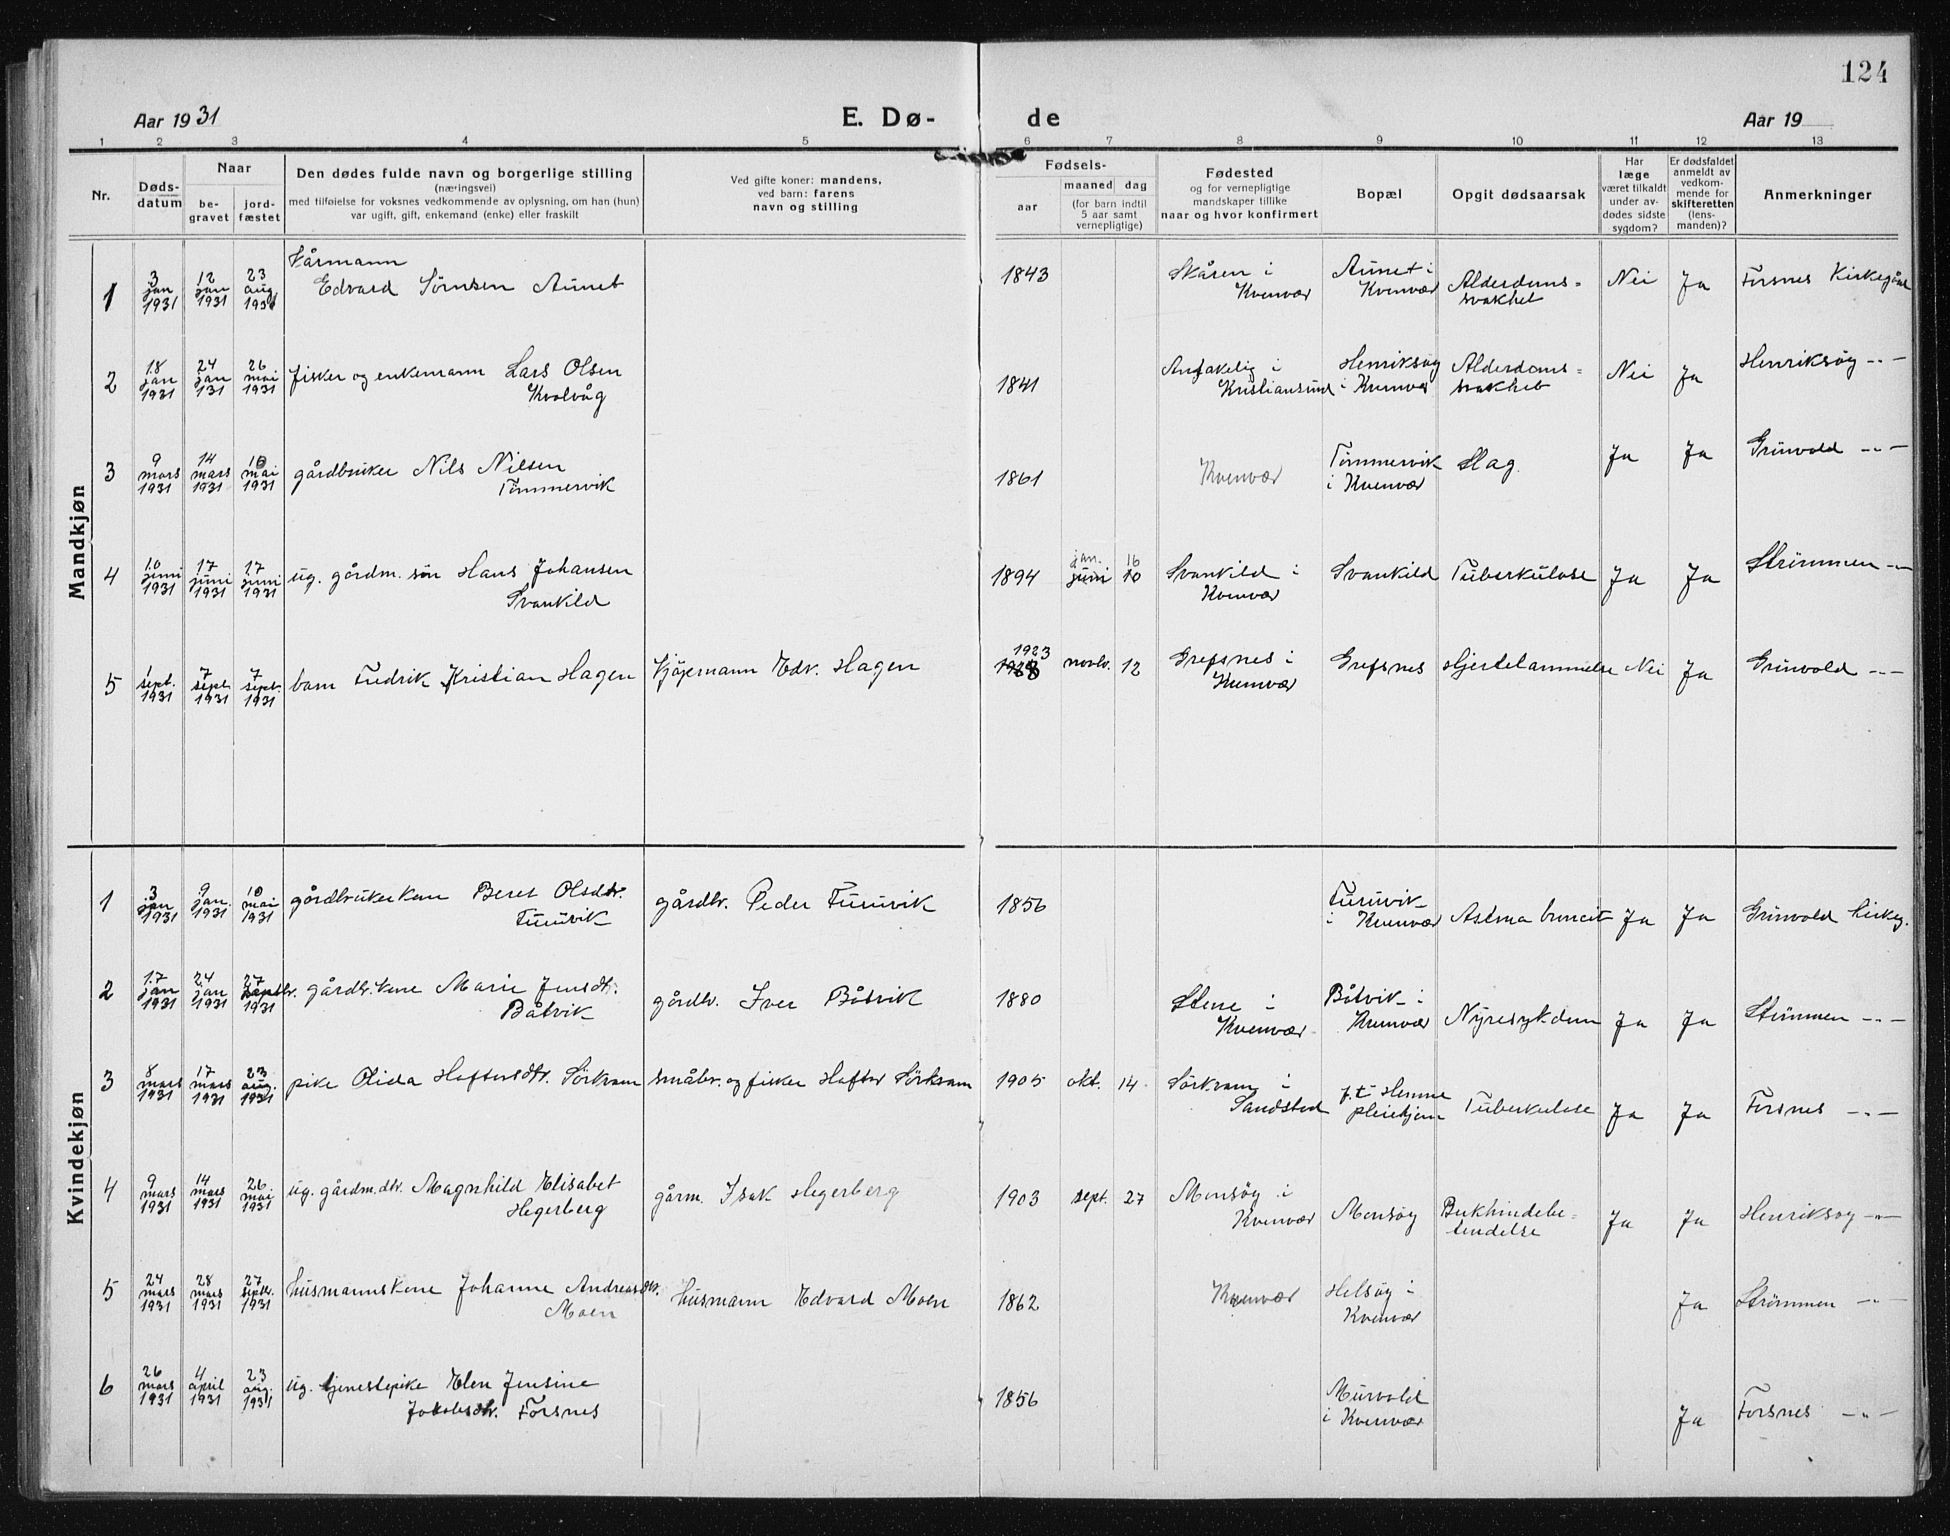 124
Aar 1931
E. Dø-
de
Aar 19
1 2 3 4 5 6 7 8 9 10 11 12 13
Nr.
Døds-
datum
Naar
be-
gravet
jord-
fæstet
Den dødes fulde navn og borgerlige stilling
(næringsvei)
med tilføielse for voksnes vedkommende av oplysning, om han (hun)
var ugift, gift, enkemand (enke) eller fraskilt
Ved gifte koner: mandens,
ved barn: farens
navn og stilling
Fødsels-
aar
maaned dag
(for barn indtil
5 aar samt
vernepligtige)
Fødested
og for vernepligtige
mandskaper tillike
naar og hvor konfirmert
Bopæl
Opgit dødsaarsak
Har
læge
været tilkaldt
under av-
dødes sidste
sygdom?
Er dødsfaldet
anmeldt av
vedkom-
mende for
skifteretten
(lens-
manden)?
Anmerkninger
Mandkjøn
1
3
jan
1931
12
jan
1931
23
aug
1931
Kårmann
Edvard Sörnsen Aunet
1843
Skåren i
Kvenvær
Aunet i
Kvenvær
Alderdoms=
svakhet
Nei
Ja
Forsnes Kirkegård
2
18
jan
1931
24
jan
131
26
mai
1931
fisker og enkemann Lars Olsen
Kvalvåg
1841
i
Kristiansund
Henriksøy
i Kvenvær
Alderdoms=
svakhet
Nei
Ja
Henriksøy -"-
3
9
mars
1931
14
mars
1931
10
mai
1931
gårdbruker Nils Nilsen
Tömmervik
1861
Kvenvær
Tömmervik
i Kvenvær
Slag.
Ja
Ja
Grünvold -"-
4
10
juni
1931
17
juni
1931
17
juni
1931
ug. gårdm. sön Hans Johansen
Svankild
1894
jan. 16
juni 10
Svankild i
Kvenvær
Svankild
Tuberkulose
Ja
Ja
Strömmen -"-
5
1
sept.
1931
7
sept
1931
7
sept.
1931
barn Fredrik Kristian Hagen
Kjöpmann Edv. Hagen
1923
1928
novb. 12
Grefsnes i
Kvenvær
Grefsnes
Hjertelammelse
Nei
Ja
Grünvold -"-
Kvindekjøn
1
3
jan
1931
9
jan.
1931
10
mai
1931
gårdbrukerkone Beret Olsdtr.
Furuvik
gårdbr. Peder Furuvik
1856
Furuvik
i Kvenvær
Astma
Ja
Ja
Grünvold kirkeg.
2
17
jan
1931
24
jan
1931
27
septbr.
1931
gårdbr.kone Marie Jensdt.
Båtvik
gårdbr. Iver Båtvik
1880
Stene i
Kvenvær
Båtvik i
Kvenvær
Nyresykdom
Ja
Ja
Strömmen -"-
3
8
mars
1931
17
mars
1931
23
aug.
1931
pike Olida Haftorsdtr. Sörkvam
småbr. og fisker Haftor Sörkvam
1905
okt. 14
Sörkvam i
Sandstad
p.t. Hemne
pleiehjem
Tuberkulose
Ja
Ja
Forsnes -"-
4
9
mars
1931
14
mars
1931
26
mai
1931
ug. gårdm.dtr. Magnhild Elisabet
Hegerberg
gårm. Isak Hegerberg
1903
sept. 27
Monsöy i
Kvenvær
Monsöy
Bukhindebe=
tendelse
Ja
Ja
Henriksøy -"-
5
24
mars
1931
28
mars
1931
27
septbr.
1931
husmannskone Johanne Andreasdtr.
Moen
Husmann Edvard Moen
1862
Kvenvær
Helsöy i
Kvenvær
Ja
Strömmen -"-
6
26
mars
1931
4
april
1931
23
aug.
1931
ug. tjenestepike Elen Jensine
Jakobsdtr. Forsnes
1856
Murvold
i Kvenvær
Ja
Forsnes -"-